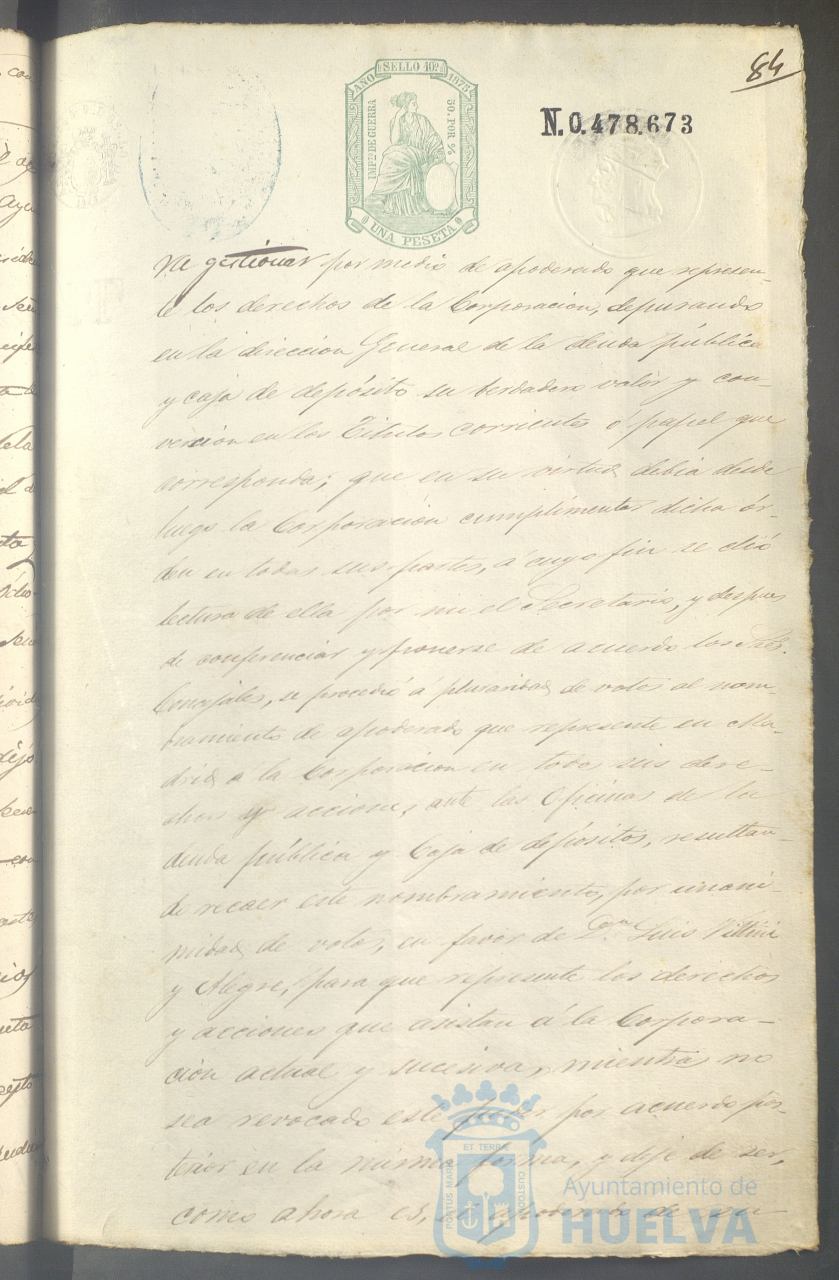 84
SELLO 10º
AÑO 1875
IMPTO DE GUERRA
50. POR %
UNA PESETA
N.0.478.673
gestionar por medio de apoderado que represen-
te los derechos de la Corporacion, depurando
en la direccion General de la deuda pública
y caja de depósito su berdadero valor y con-
vercion en los Titulos corrientes ó papel que
corresponda; que en su virtud debia desde
luego la Corporación cumplimentar dicha ór-
den en todas sus partes, á cuyo fin se dió
lectura de ella por mi el Secretario, y despues
de conferenciar y ponerse de acuerdo los Sres.
Concejales, se procedió á pluraridad de votos al nom-
bramiento de apoderado que represente en Ma-
drid á la Corporacion en todos sus dere-
chos y acciones ante las Oficinas de la
deuda pública y Caja de depósitos, resultan-
do recaer este nombramiento, por unani-
midad de votos, en favor de Dn Luis Vittini
y Alegre, para que represente los derechos
y acciones que asistan á la Corpora-
cion actual y sucesiva, mientras no
sea revocado este poder por acuerdo pos-
terior en la misma forma, y deje de ser,
como ahora es, el apoderado de su
PORTUS MARIS
ET TERRÆ
CUSTODIA
Ayuntamiento de
HUELVA